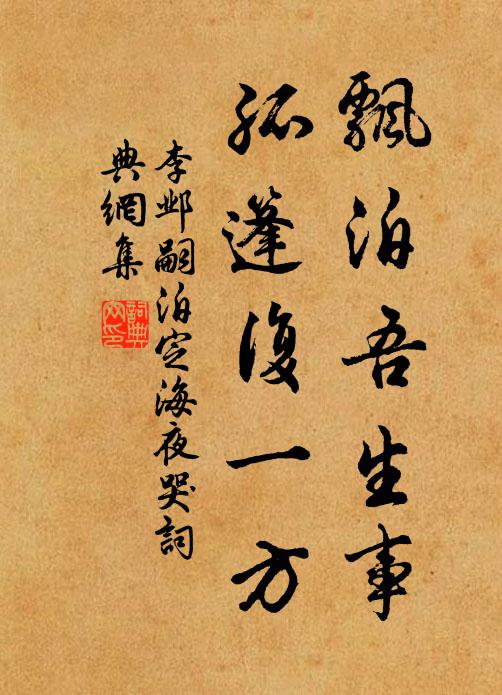 飄泊吾生事
孤篷復一方
李邺嗣泊定海夜哭詞
典網集
詞典
网印